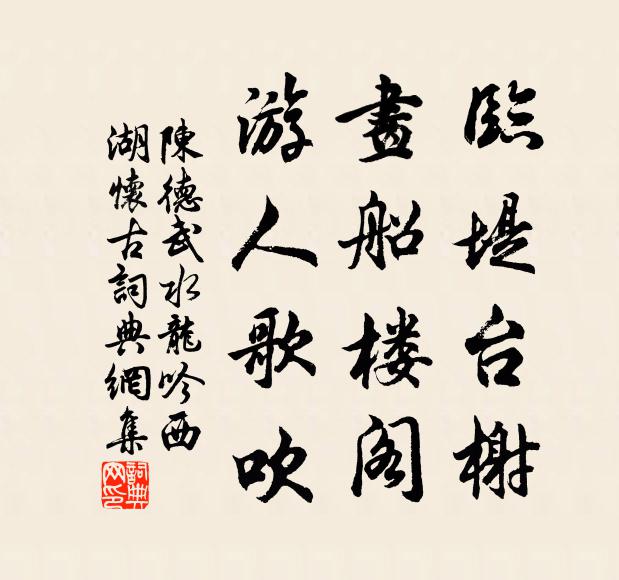 臨堤台榭
畫船楼阁
游人歌吹
陳德武水龍吟西
湖懷古詞典網集
詞典
网印